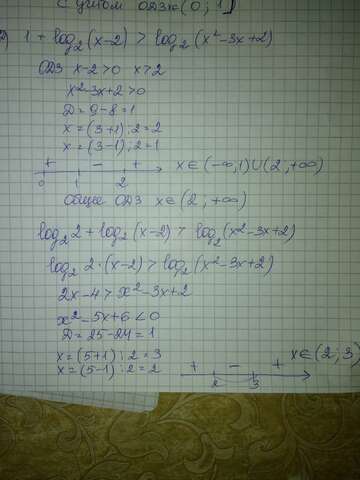 с учетом ОДЗ x∈(0;1]
1 + log₂(x-2) > log₂(x²-3x+2)
ОДЗ x-2>0 x>2
x²-3x+2>0
D = 9-8=1
x = (3+1):2=2
x = (3-1):2=1
+ - +
0 1 2
x∈(-∞,1)∪(2,+∞)
Общее ОДЗ x∈(2,+∞)
log₂2 + log₂(x-2) > log₂(x²-3x+2)
log₂ 2·(x-2) > log₂(x²-3x+2)
2x-4 > x²-3x+2
x²-5x+6<0
D = 25-24=1
x = (5+1):2=3
x = (5-1):2=2
+ - +
2 3
x∈(2;3)